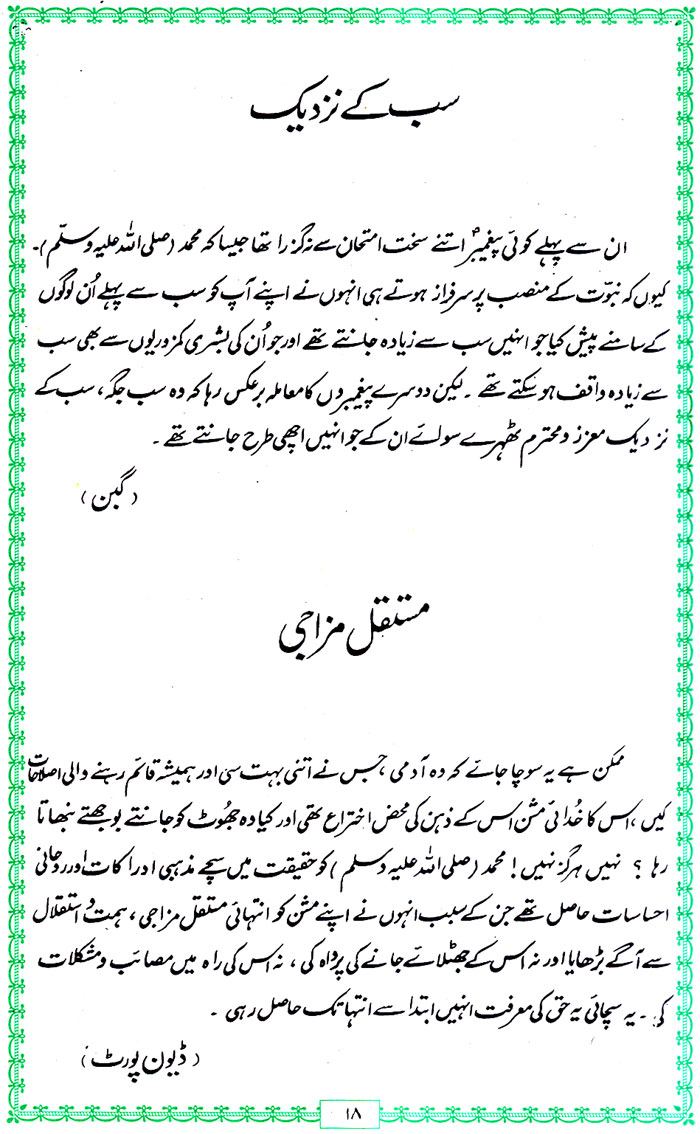 سب کے نزدیک
ان سے پہلے کوئی پیغمبرؐ اتنے سخت امتحان سے نہ گزرا تھا جیسا کہ محمد (صلی اللہ علیہ وسلّم)۔
کیوں کہ نبوّت کے منصب پر سرفراز ہوتے ہی انہوں نے اپنے آپ کو سب سے پہلے اُن لوگوں
کے سامنے پیش کیا جو انہیں سب سے زیادہ جانتے تھے اور جو اُن کی بشری کمزوریوں سے بھی سب
سے زیادہ واقف ہو سکتے تھے ۔ لیکن دوسرے پیغمبروں کا معاملہ برعکس رہا کہ وہ سب جگہ، سب کے
نزدیک معزز و محترم ٹھہرے سوائے ان کے جو انہیں اچھی طرح جانتے تھے ۔
(گبن)
مستقل مزاجی
ممکن ہے یہ سوچا جائے کہ وہ آدمی، جس نے اتنی بہت سی اور ہمیشہ قائم رہنے والی اصلاحات
کیں، اس کا خُدائی مشن اس کے ذہن کی محض اختراع تھی اور کیا وہ جھُوٹ کو جانتے بوجھتے نبھاتا
رہا ؟ نہیں ہرگز نہیں! محمد (صلی اللہ علیہ وسلم) کو حقیقت میں سچے مذہبی ادراکات اور روحانی
احساسات حاصل تھے جن کے سبب انہوں نے اپنے مشن کو انتہائی مستقل مزاجی، ہمت و استقلال
سے آگے بڑھایا اور نہ اس کے جھٹلائے جانے کی پرواہ کی، نہ اس کی راہ میں مصائب و مشکلات
کی ۔ یہ سچائی یہ حق کی معرفت انہیں ابتدا سے انتہا تک حاصل رہی ۔
(ڈیون پورٹ)
۱۸